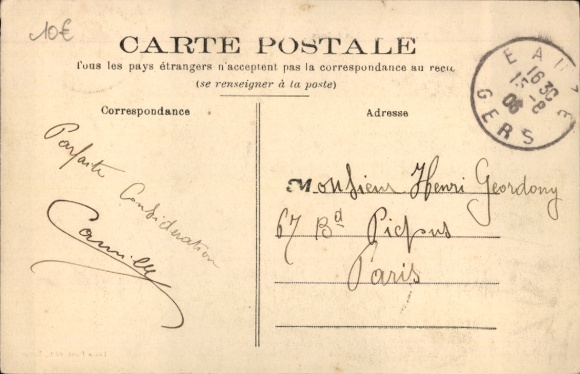 10€
CARTE POSTALE
Tous les pays étrangers n'acceptent pas la correspondance au recu
(se renseigner à la poste)
Correspondance
Adresse
EAUZE
16 30
8
06
GERS
Parfaite Considération
Camille
Monsieur Henri Geordony
67 Bd Picpus
Paris